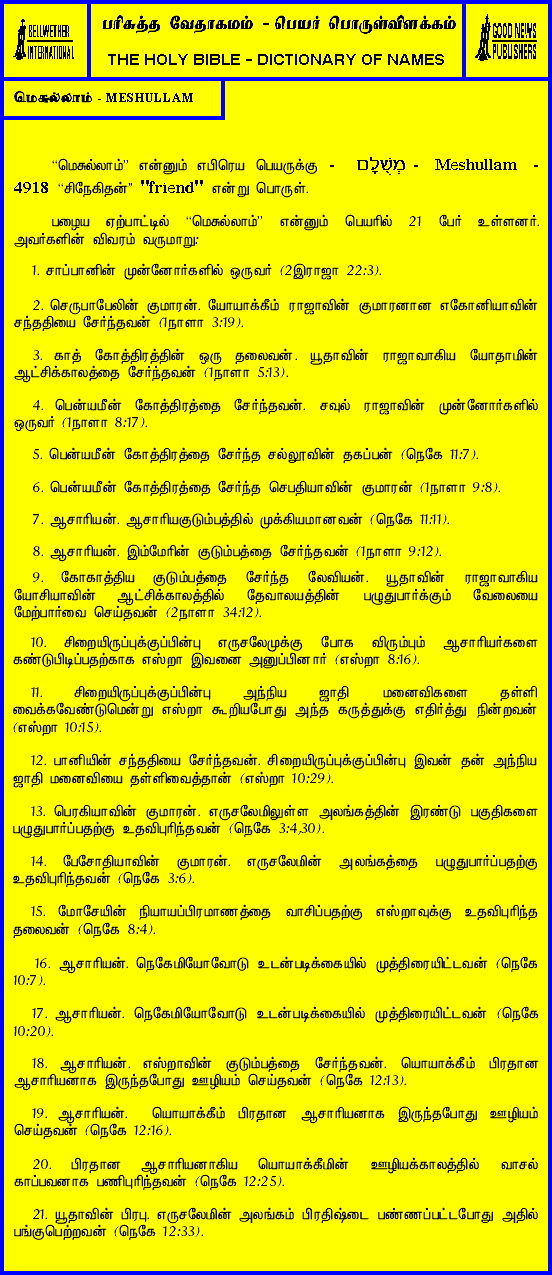 BELLWETHER
INTERNATIONAL
பரிசுத்த வேதாகமம் - பெயர் பொருள்விளக்கம்
THE HOLY BIBLE - DICTIONARY OF NAMES
GOOD NEWS
PUBLISHERS
மெசுல்லாம் - MESHULLAM
“மெசுல்லாம்” என்னும் எபிரெய பெயருக்கு - מְשֻׁלָּם - Meshullam -
4918 “சிநேகிதன்” "friend" என்று பொருள்.
பழைய ஏற்பாட்டில் “மெசுல்லாம்” என்னும் பெயரில் 21 பேர் உள்ளனர்.
அவர்களின் விவரம் வருமாறு:
1. சாப்பானின் முன்னோர்களில் ஒருவர் (2இராஜா 22:3).
2. செருபாபேலின் குமாரன். யோயாக்கீம் ராஜாவின் குமாரனான எகோனியாவின்
சந்ததியை சேர்ந்தவன் (1நாளா 3:19).
3. காத் கோத்திரத்தின் ஒரு தலைவன். யூதாவின் ராஜாவாகிய யோதாமின்
ஆட்சிக்காலத்தை சேர்ந்தவன் (1நாளா 5:13).
4. பென்யமீன் கோத்திரத்தை சேர்ந்தவன். சவுல் ராஜாவின் முன்னோர்களில்
ஒருவர் (1நாளா 8:17).
5. பென்யமீன் கோத்திரத்தை சேர்ந்த சல்லூவின் தகப்பன் (நெகே 11:7).
6. பென்யமீன் கோத்திரத்தை சேர்ந்த செபதியாவின் குமாரன் (1நாளா 9:8).
7. ஆசாரியன். ஆசாரியகுடும்பத்தில் முக்கியமானவன் (நெகே 11:11).
8. ஆசாரியன். இம்மேரின் குடும்பத்தை சேர்ந்தவன் (1நாளா 9:12).
9. கோகாத்திய குடும்பத்தை சேர்ந்த லேவியன். யூதாவின் ராஜாவாகிய
யோசியாவின் ஆட்சிக்காலத்தில் தேவாலயத்தின் பழுதுபார்க்கும் வேலையை
மேற்பார்வை செய்தவன் (2நாளா 34:12).
10. சிறையிருப்புக்குப்பின்பு எருசலேமுக்கு போக விரும்பும் ஆசாரியர்களை
கண்டுபிடிப்பதற்காக எஸ்றா இவனை அனுப்பினார் (எஸ்றா 8:16).
11. சிறையிருப்புக்குப்பின்பு அந்நிய ஜாதி மனைவிகளை தள்ளி
வைக்கவேண்டுமென்று எஸ்றா கூறியபோது அந்த கருத்துக்கு எதிர்த்து நின்றவன்
(எஸ்றா 10:15).
12. பானியின் சந்ததியை சேர்ந்தவன். சிறையிருப்புக்குப்பின்பு இவன் தன் அந்நிய
ஜாதி மனைவியை தள்ளிவைத்தான் (எஸ்றா 10:29).
13. பெரகியாவின் குமாரன். எருசலேமிலுள்ள அலங்கத்தின் இரண்டு பகுதிகளை
பழுதுபார்ப்பதற்கு உதவிபுரிந்தவன் (நெகே 3:4,30).
14. பேசோதியாவின் குமாரன். எருசலேமின் அலங்கத்தை பழுதுபார்ப்பதற்கு
உதவிபுரிந்தவன் (நெகே 3:6).
15. மோசேயின் நியாயப்பிரமாணத்தை வாசிப்பதற்கு எஸ்றாவுக்கு உதவிபுரிந்த
தலைவன் (நெகே 8:4).
16. ஆசாரியன். நெகேமியோவோடு உடன்படிக்கையில் முத்திரையிட்டவன் (நெகே
10:7).
17. ஆசாரியன். நெகேமியோவோடு உடன்படிக்கையில் முத்திரையிட்டவன் (நெகே
10:20).
18. ஆசாரியன். எஸ்றாவின் குடும்பத்தை சேர்ந்தவன். யொயாக்கீம் பிரதான
ஆசாரியனாக இருந்தபோது ஊழியம் செய்தவன் (நெகே 12:13).
19. ஆசாரியன். யொயாக்கீம் பிரதான ஆசாரியனாக இருந்தபோது ஊழியம்
செய்தவன் (நெகே 12:16).
20. பிரதான ஆசாரியனாகிய யொயாக்கீமின் ஊழியக்காலத்தில் வாசல்
காப்பவனாக பணிபுரிந்தவன் (நெகே 12:25).
21. யூதாவின் பிரபு. எருசலேமின் அலங்கம் பிரதிஷ்டை பண்ணப்பட்டபோது அதில்
பங்குபெற்றவன் (நெகே 12:33).